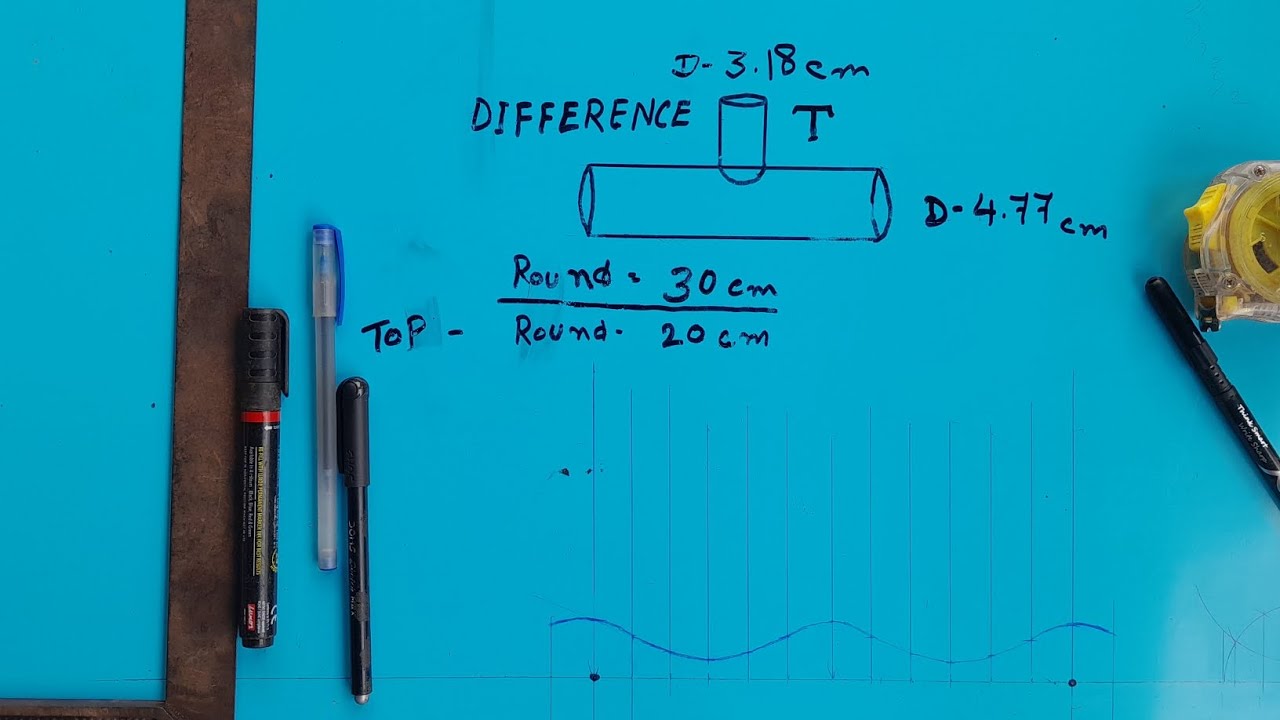 D-3.18cm
DIFFERENCE T
D-4.77cm
Round = 30cm
TOP - Round- 20cm
Think Smart